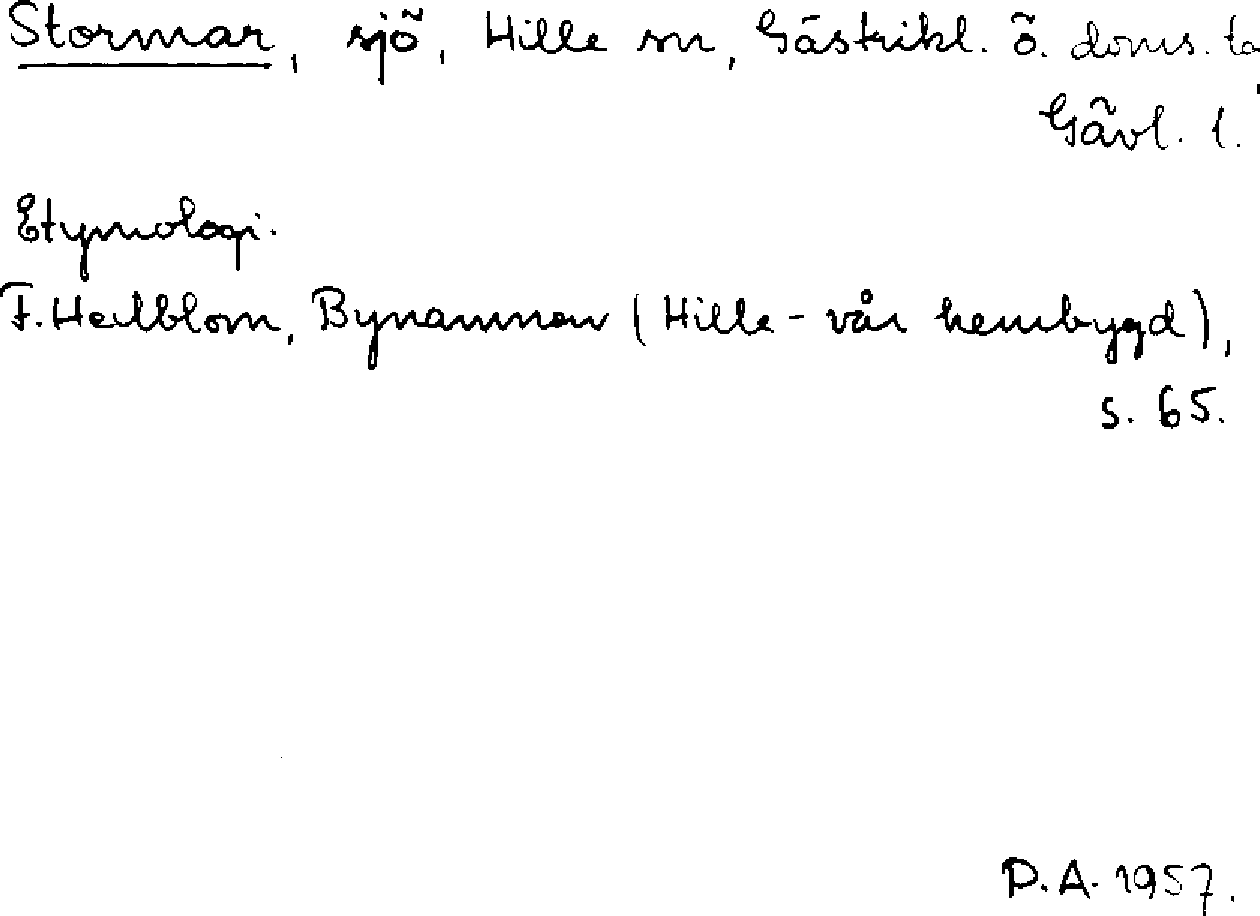 Stormar, sjö, Hille sn, Gästrikl. ö. doms. ta
Gävl. l.
Etymologi.
F. Hedblom, Bynamnen (Hille - vår hembygd),
s. 65.
P.A. 1957.